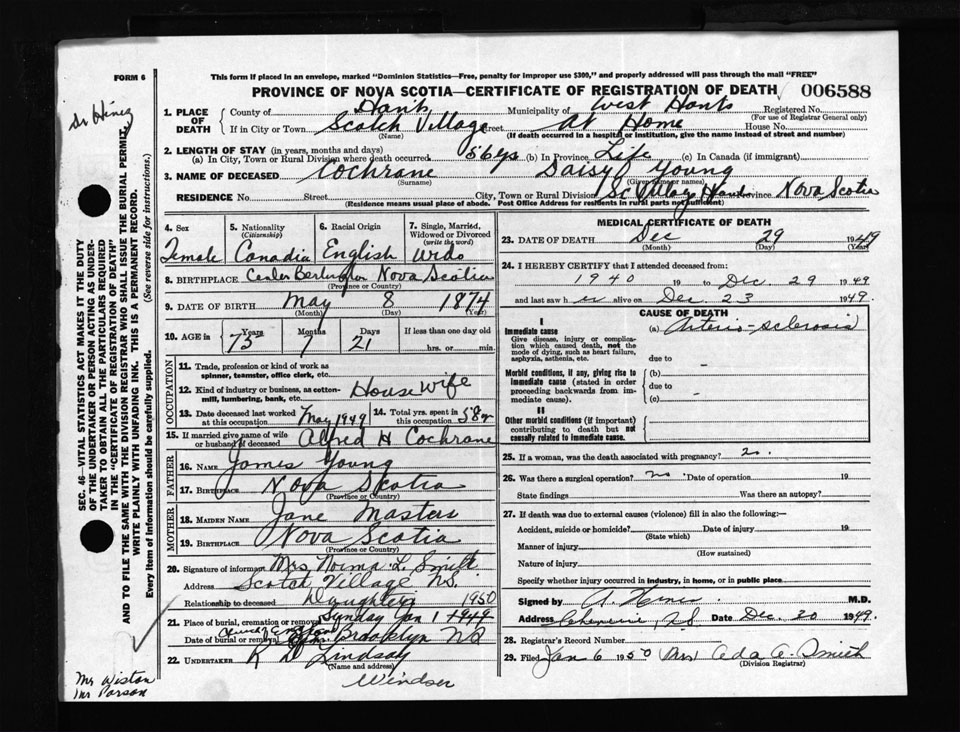 FORM 6
This form if placed in an envelope, marked "Dominion Statistics—Free, penalty for improper use $300," and properly addressed will pass through the mail "FREE"
PROVINCE OF NOVA SCOTIA—CERTIFICATE OF REGISTRATION OF DEATH 006588
1. PLACE OF DEATH
County of Hants Municipality of West Hants Registered No.
(For use of Registrar General only)
If in City or Town Scotch Village Street At Home House No.
(Name) (If death occurred in a hospital or institution, give the name instead of street and number)
2. LENGTH OF STAY (in years, months and days)
(a) In City, Town or Rural Division where death occurred 56 yrs (b) In Province Life (c) In Canada (if immigrant)
3. NAME OF DECEASED Cochrane Daisy Young
(Surname) (Given name or names)
RESIDENCE No. Street City, Town or Rural Division Sc Village Hants Province Nova Scotia
(Residence means usual place of abode. Post Office Address for residents in rural parts not sufficient)
4. Sex Female
5. Nationality (Citizenship) Canadia
6. Racial Origin English
7. Single, Married, Widowed or Divorced (write the word) Wido
8. BIRTHPLACE Center Berlington Nova Scotia
(Province or Country)
9. DATE OF BIRTH May 8 1874
(Month) (Day) (Year)
10. AGE in 75 Years 7 Months 21 Days If less than one day old hrs. or min.
OCCUPATION
11. Trade, profession or kind of work as spinner, teamster, office clerk, etc.
12. Kind of industry or business, as cotton-mill, lumbering, bank, etc. House Wife
13. Date deceased last worked at this occupation May 1949
14. Total yrs. spent in this occupation 58 yr
15. If married give name of wife or husband of deceased Alfred H Cochrane
FATHER
16. NAME James Young
17. BIRTHPLACE Nova Scotia
(Province or Country)
MOTHER
18. MAIDEN NAME Jane Masters
19. BIRTHPLACE Nova Scotia
(Province or Country)
20. Signature of informant Mrs Norma L. Smith
Address Scotch Village N.S.
Relationship to deceased Daughter
1950
21. Place of burial, cremation or removal Sunday Jan 1 1949
Date of burial or removal Church England Brooklyn NS
22. UNDERTAKER R D Lindsay
(Name and address)
Windsor
MEDICAL CERTIFICATE OF DEATH
23. DATE OF DEATH Dec 29 1949
(Month) (Day) (Year)
24. I HEREBY CERTIFY that I attended deceased from:
1940 19 to Dec. 29 1949
and last saw her alive on Dec. 23 1949.
CAUSE OF DEATH
I
Immediate cause (a) Arterio-sclerosis
Give disease, injury or complication which caused death, not the mode of dying, such as heart failure, asphyxia, asthenia, etc.
due to
Morbid conditions, if any, giving rise to immediate cause (stated in order proceeding backwards from immediate cause).
(b)
due to
(c)
II
Other morbid conditions (if important) contributing to death but not causally related to immediate cause.
25. If a woman, was the death associated with pregnancy? no.
26. Was there a surgical operation? no. Date of operation 19
State findings Was there an autopsy?
27. If death was due to external causes (violence) fill in also the following:—
Accident, suicide or homicide? Date of injury 19
(State which)
Manner of injury
(How sustained)
Nature of injury
Specify whether injury occurred in industry, in home, or in public place
Signed by A. M.D.
Address Cheverie, N.S. Date Dec. 30 1949.
28. Registrar's Record Number
29. Filed Jan 6 1950 Mrs Ada A. Smith
(Division Registrar)
SEC. 46—VITAL STATISTICS ACT MAKES IT THE DUTY
OF THE UNDERTAKER OR PERSON ACTING AS UNDERTAKER TO OBTAIN ALL THE PARTICULARS REQUIRED
IN THE "CERTIFICATE OF REGISTRATION OF DEATH"
AND TO FILE THE SAME WITH THE DIVISION REGISTRAR WHO SHALL ISSUE THE BURIAL PERMIT.
WRITE PLAINLY WITH UNFADING INK. THIS IS A PERMANENT RECORD.
Every item of information should be carefully supplied. (See reverse side for instructions.)
Mr Wiston
Mr Parson